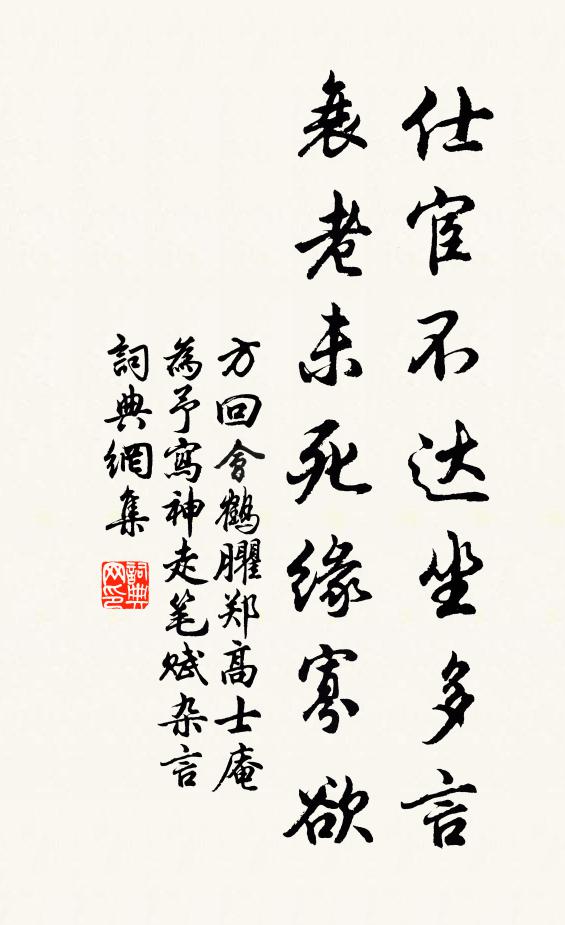 仕宦不达坐多言
衰老未死缘寡欲
方回会鹤臞郑高士庵
為予寫神走笔赋杂言
詞典網集
詞典网印